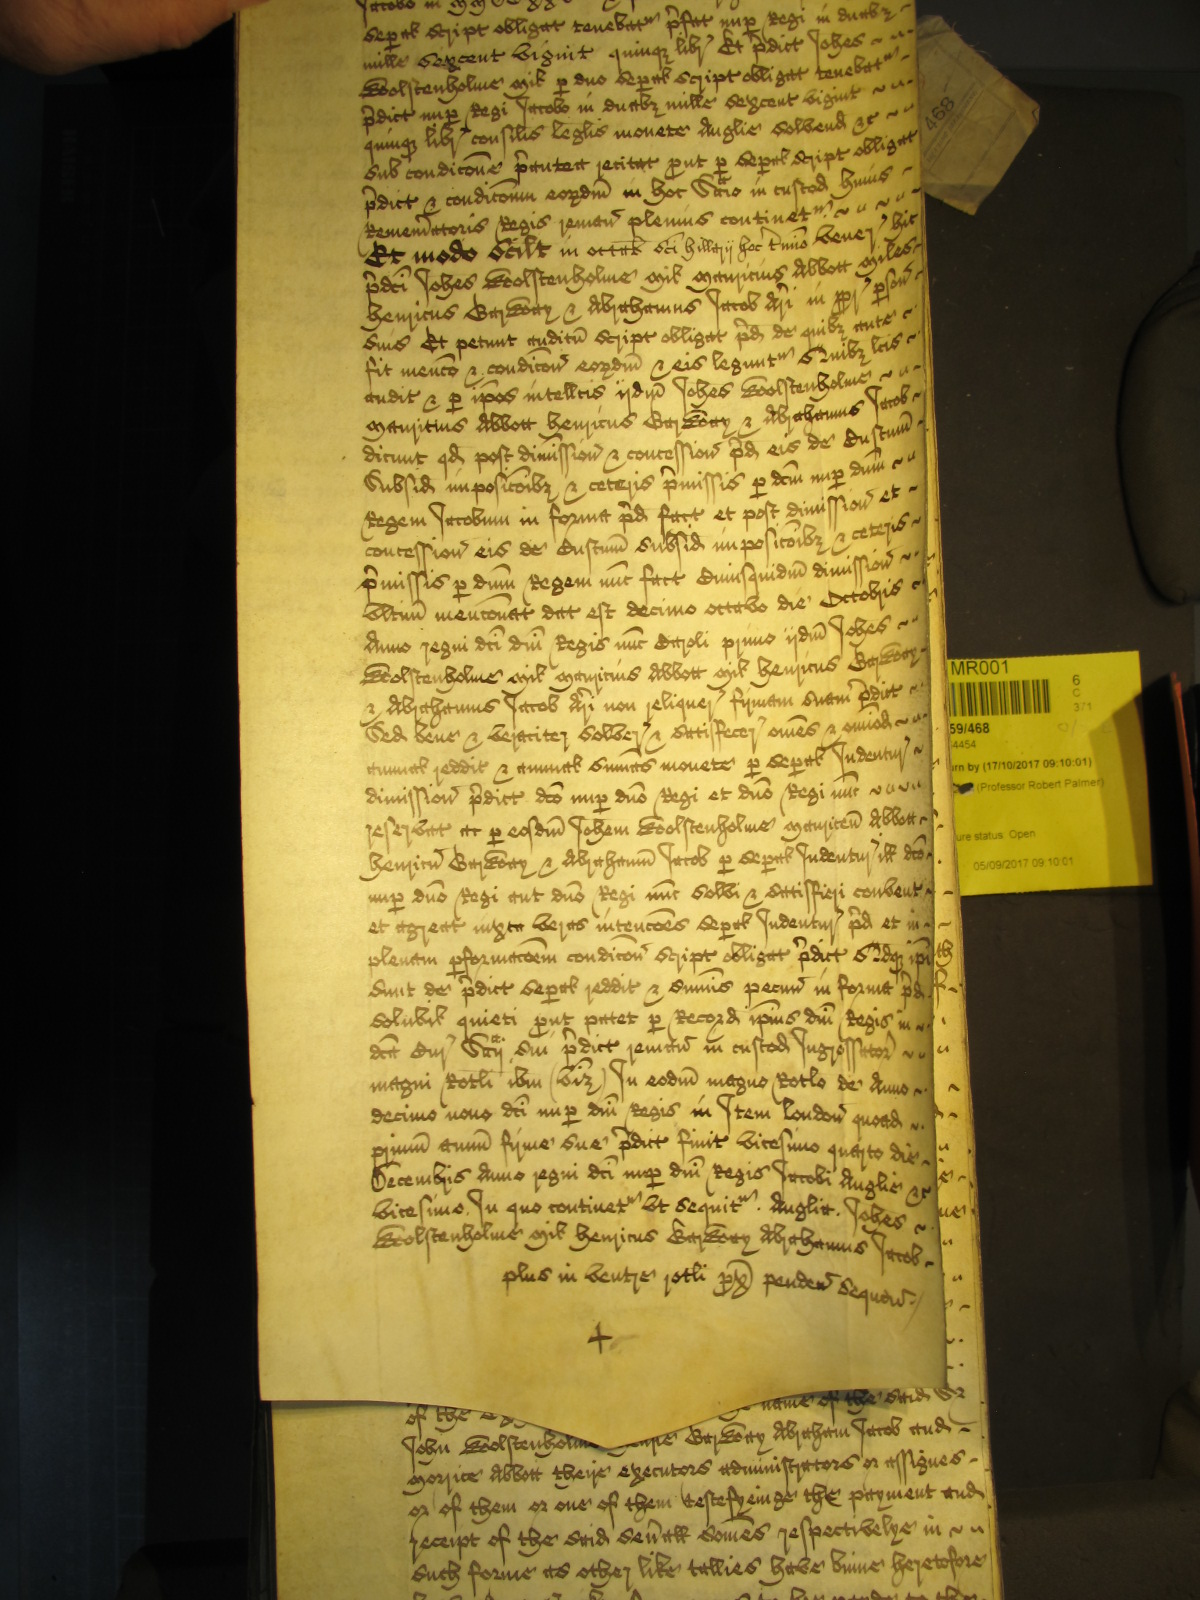 sepal script obligat tenebatur p̄fat nup Regi in duabꝫ
mille sexcent vigint quinqꝫ libr̄ Et p̄dict Johes
Wolstenholme mil p duo sepal script obligat tenebatur
p̄dict nup Regi Jacobo in duabꝫ mille sexcent vigint
quinqꝫ libr̄ consilis leglis monete Anglie solvend &c
sub condicōne p̄antea recitat put p sepal script obligat
p̄dict & condicōnu eoꝝdm̄ in hoc Scc̄io in custod huius
Remem̄atoris Regis remań plenius continetur
Et modo Scilt in octab Sc̄i Hillarij hoc t̄mio vener̄ hic
p̄dc̄i Johes Wolstenholme mil Mauricius Abbott miles
Henricus Garway & Abrahamus Jacob Ar̄i in ppr̄ pson̄
suis Et petunt auditū script obligat p̄d de quibꝫ ante
fit menco & condicōn̄ eoꝝdm̄ & eis leguntur Quibꝫ lcis
audit & p ip̄os intellcis ijdm̄ Johes Wolstenholme
Mauricius Abbott Henricus Garway & Abrahamus Jacob
dicunt qd post dimission̄ & concession̄ p̄d eis de Custum̄
Subsid imposicōibꝫ & ceteris p̄missis p dcm̄ nup dnm̄
Regem Jacobum in forma p̄d fact et post dimission̄ et
concession̄ eis de Custum̄ Subsid imposicōibꝫ & ceteris
p̄missis p dnm̄ Regem nūc fact Cuiusquidm̄ dimission̄
vltim̄ menconat dat est decimo octavo die Octobris
Anno regni dc̄i dn̄i Regis nūc Caroli primo ijdm̄ Johes
Wolstenholme mil Mauricius Abbott mil Henricus Garway
& Abrahamus Jacob Ar̄i non reliquer̄ firmam suam p̄dict
Sed bene & veraciter solver̄ & satisfecer̄ om̄es & om̄iod
annual reddit & annual sum̄as monete p sepal Indentur̄
dimission̄ p̄dict dc̄o nup dn̄o Regi et dn̄o Regi nūc
reservat ac p eosdm̄ Johem Wolstenholme Mauriciū Abbott
Henricū Garway & Abrahamū Jacob p sepal Indentur̄ ill dc̄o
nup dn̄o Regi aut dn̄o Regi nūc solvi & satisfieri convent
et agreat iuxta veras intencōes sepal Indentur̄ p̄d et in
plenam pformacōem condicōn̄ script obligat p̄dict Qdqꝫ ip̄i
sunt de p̄dict sepal reddit & summis pecun̄ in forma p̄d
solubil quieti put patet p Record ip̄ius dn̄i Regis in
dc̄a Cur̄ Scc̄ij sui p̄dict remań in custod Ingrossator̄
magni Rotli ib̄m (viz) In eodm̄ magno Rotlo de Anno
decimo nono dc̄i nup dn̄i Regis in Item London̄ quoad
primū annū firme sue p̄dict finit vicesimo quarto die
Decembris Anno regni dc̄i nup dn̄i Regis Jacobi Anglie &c
vicesimo. In quo continetur vt sequitur. Anglia. Johes
Wolstenholme mil Henricus Garway Abrahamus Jacob
plus in ventre rotli px̄ penden̄ sequen̄
of the name of the said Sr
John Wolstenholme Garway Abraham Jacob and
Morrice Abbott theire executors administrators or assignes
or of them or one of them testefyeinge the payment and
receipt of the said sev̄all somes respectivelye in
such forme as other like tallies have bine heretofore
468
MR001
6
C
3/1
59/468
4454
urn by (17/10/2017 09:10:01)
(Professor Robert Palmer)
ure status: Open
05/09/2017 09:10:01